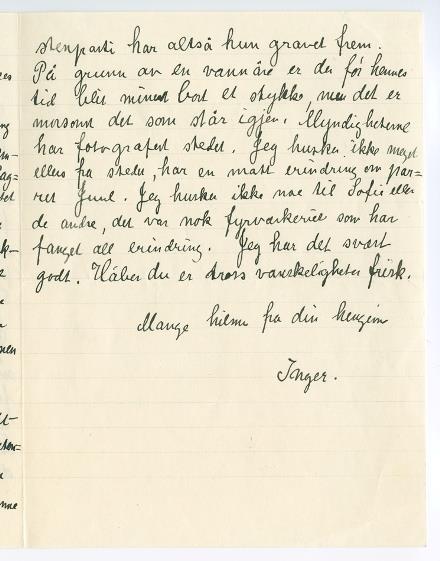 stenparti har altså hun gravet frem.
På grunn av en vannåre er der før hennes
tid blit minert bort et stykke, men det er
morsomt det som står igjen. Myndigheterne
har fotografert stedet. Jeg husker ikke meget
ellers fra stedet, har en matt erindring om
Juul. Jeg husker ikke noe til Sofie eller
de andre, det var nok fyrverkeriet som har
fanget all erindring. Jeg har det svært
godt. Håber du er tross vanskeligheter frisk.
Mange hilsner fra din hengivne
Inger.